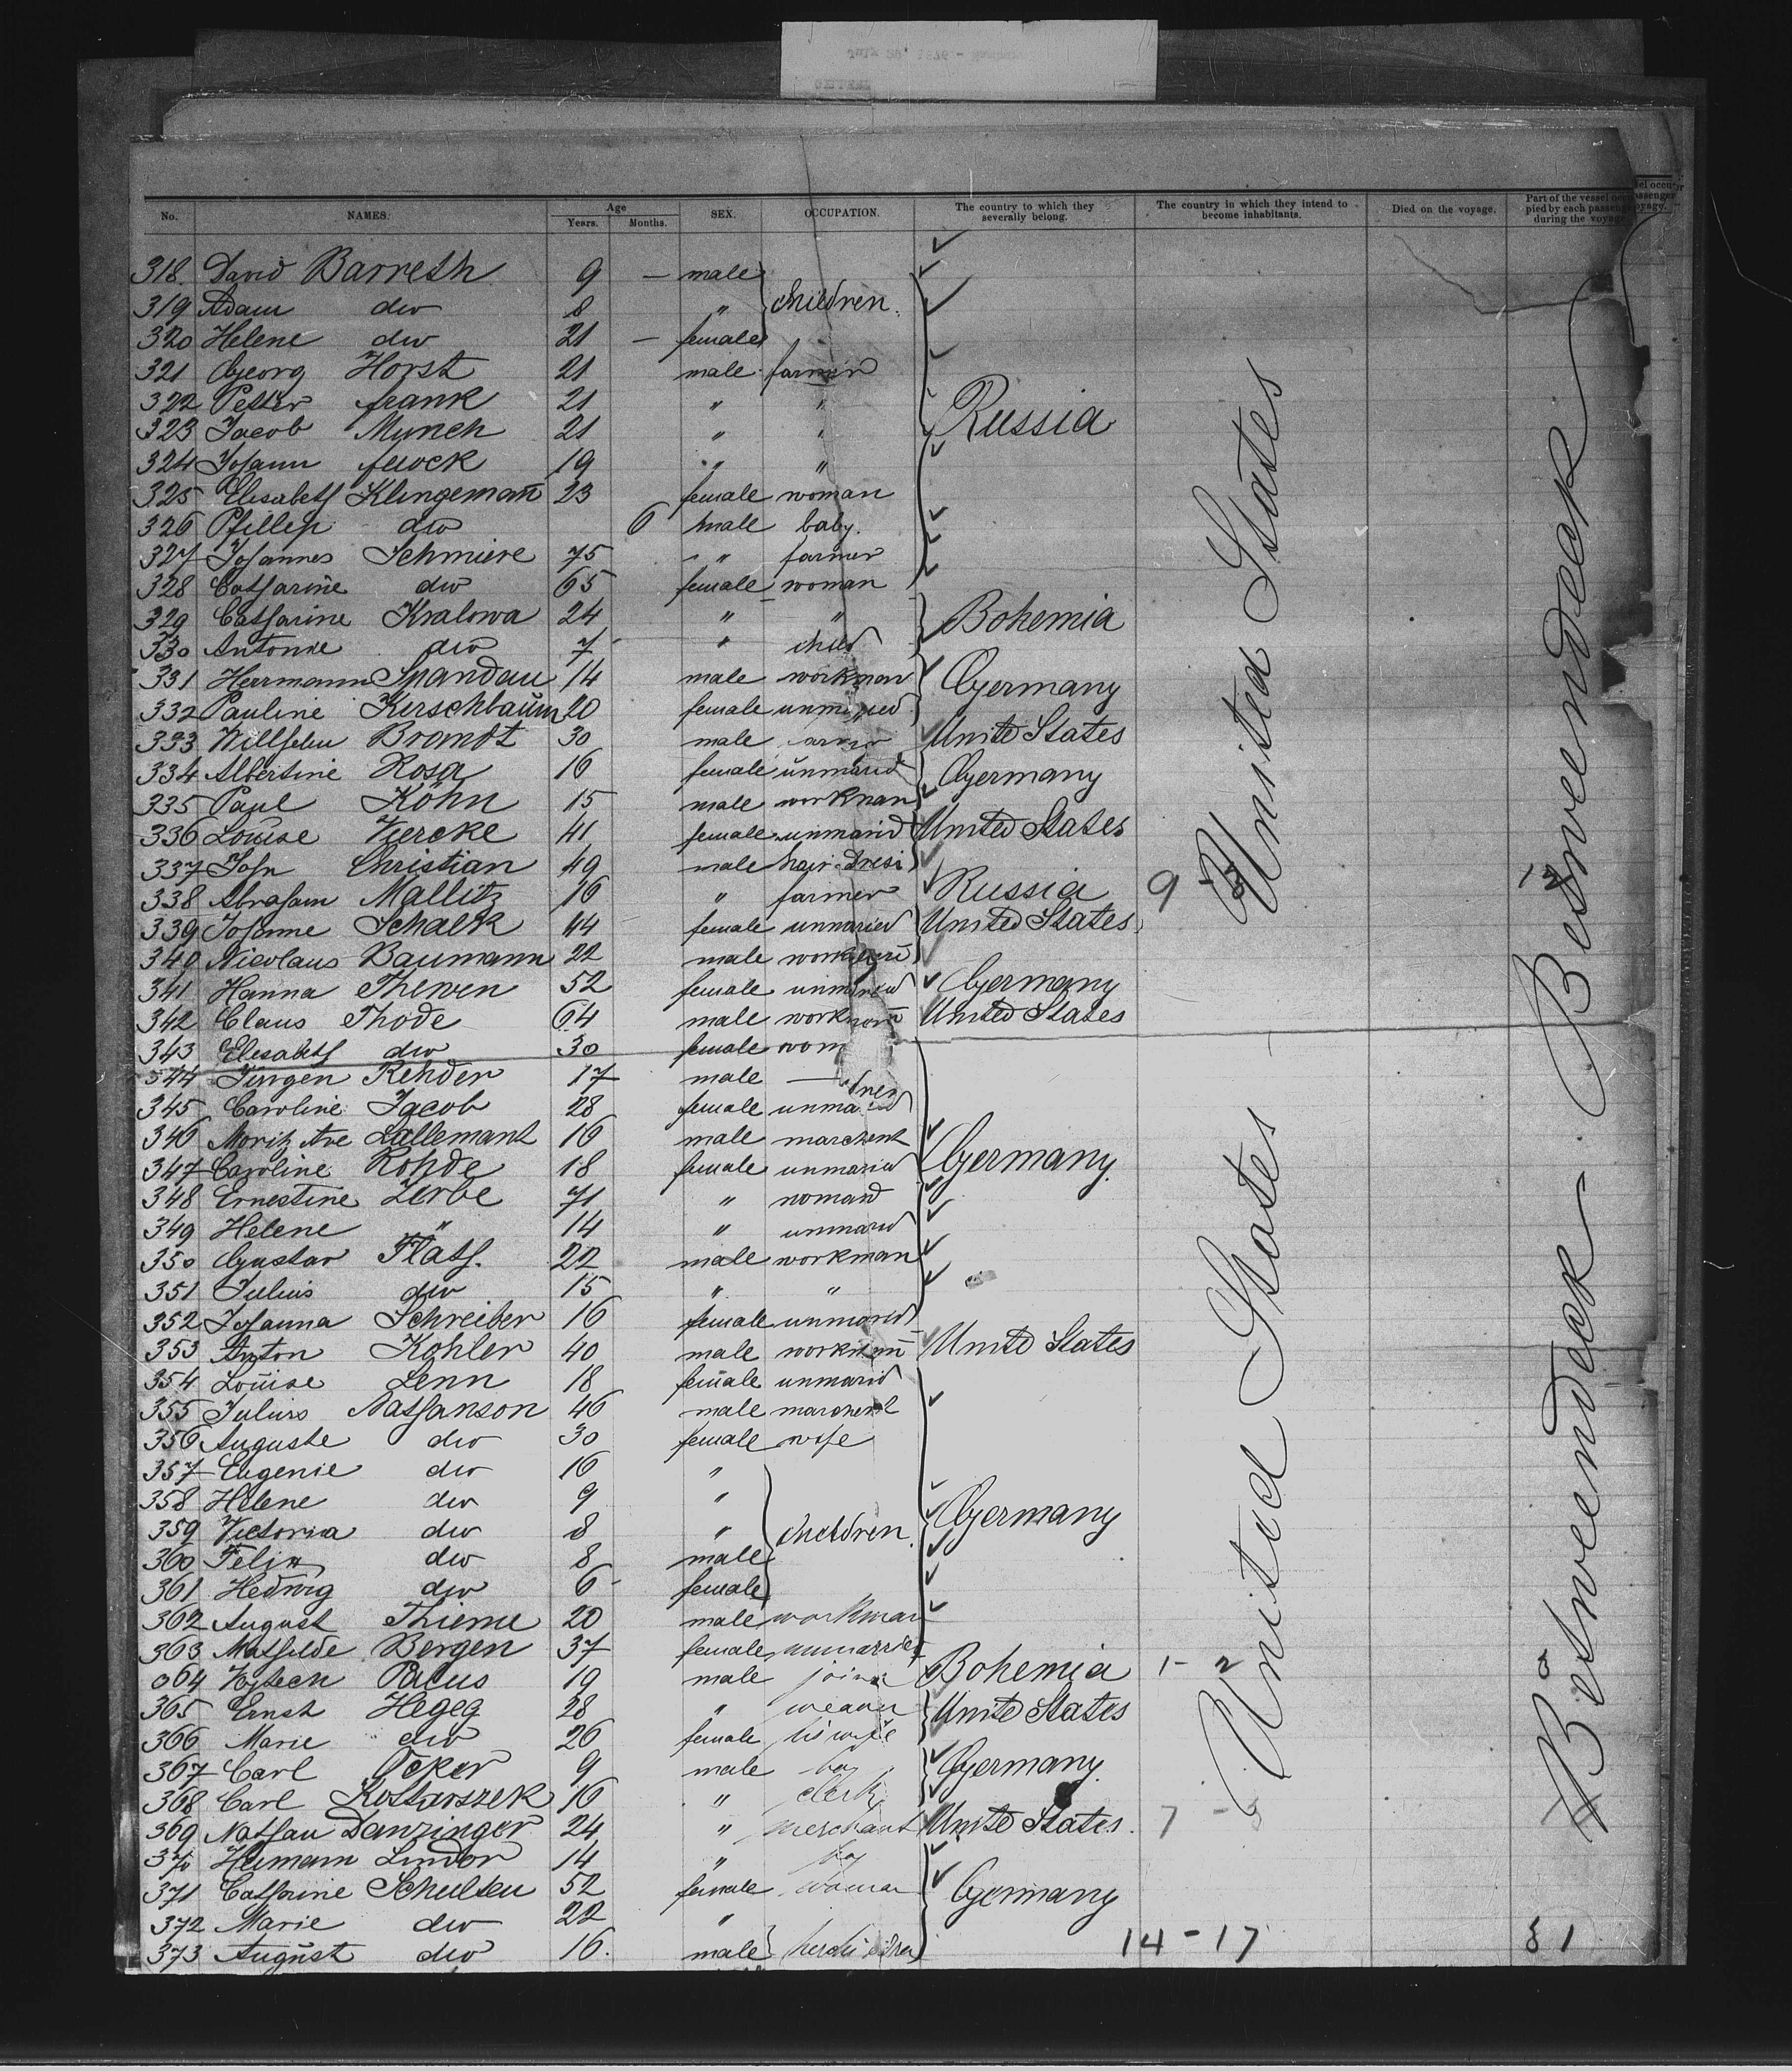 No. NAMES. Age Years. Months. SEX. OCCUPATION. The country to which they severally belong. The country in which they intend to become inhabitants. Died on the voyage. Part of the vessel occupied by each passenger during the voyage.
318. David Barreth 9 — male
319 Adam do 8 " children.
320 Helene do 21 — female
321 Georg Horst 21 male farmer
322 Petter frank 21 " " Russia
323 Jacob Munch 21 " "
324 Johann 19 " "
325 Elisabeth Klingemañ 23 female woman
326 Phillip do 6 male baby.
327 Johannes Schmiere 75 " farmer
328 Catharine do 65 female woman
329 Catharine Kralowa 24 " " Bohemia
330 Antonie do 7 " child
331 Herrmann Spandau 14 male workman Germany
332 Pauline Kerschbaum 20 female
333 Wilhelm Brandt 30 male United States
334 Albertine Rosa 16 female unmarid Germany
335 Paul Köhn 15 male workman
336 Louise Viercke 41 female unmarid United States
337 John Christian 49 male hair-dresi
338 Abraham Mallitz 16 " farmer Russia 9 -
339 Johanne Schalk 44 female unmaried United States
340 Nicolaus Baumann 22 male
341 Hanna Thewen 52 female Germany
342 Claus Thode 64 male United States
343 Elesabeth do 30 female wom
344 Jürgen Rehder 17 male —
345 Caroline Jacob 28 female
346 Moritz Ave Lallemant 16 male marchent
347 Caroline Rohde 18 female unmarid Germany.
348 Ernestine Zerbe 71 "
349 Helene " 14 " unmarid
350 Gustav Flath. 22 male workman
351 Julius do 15 " "
352 Johanna Schreiber 16 female unmarid
353 Anton Kohler 40 male United States
354 Louise Lenn 18 female unmarid
355 Julius Nathanson 46 male marchent
356 Auguste do 30 female wife
357 Eugenie do 16 "
358 Helene do 9 " Germany
359 Victoria do 8 " children.
360 Felix do 8 male
361 Hedwig do 6 female
362 August Thieme 20 male workman
363 Mathilde Bergen 37 female unmarried
364 Vojtech 19 male Bohemia 1 - 2
365 Ernst Hegeg 28 " weaver United States
366 Marie do 26 female his wife
367 Carl Ocker 9 male boy Germany.
368 Carl Kostarszek 16 " clerk
369 Nathan Danzinger 24 " merchant United States. 7 -
370 Hermann Lindor 14 " boy
371 Catharine Schulten 52 female woman Germany
372 Marie do 22 "
373 August do 16. male 14 - 17 81
United States
United States
Betweendeck
Betweendeck